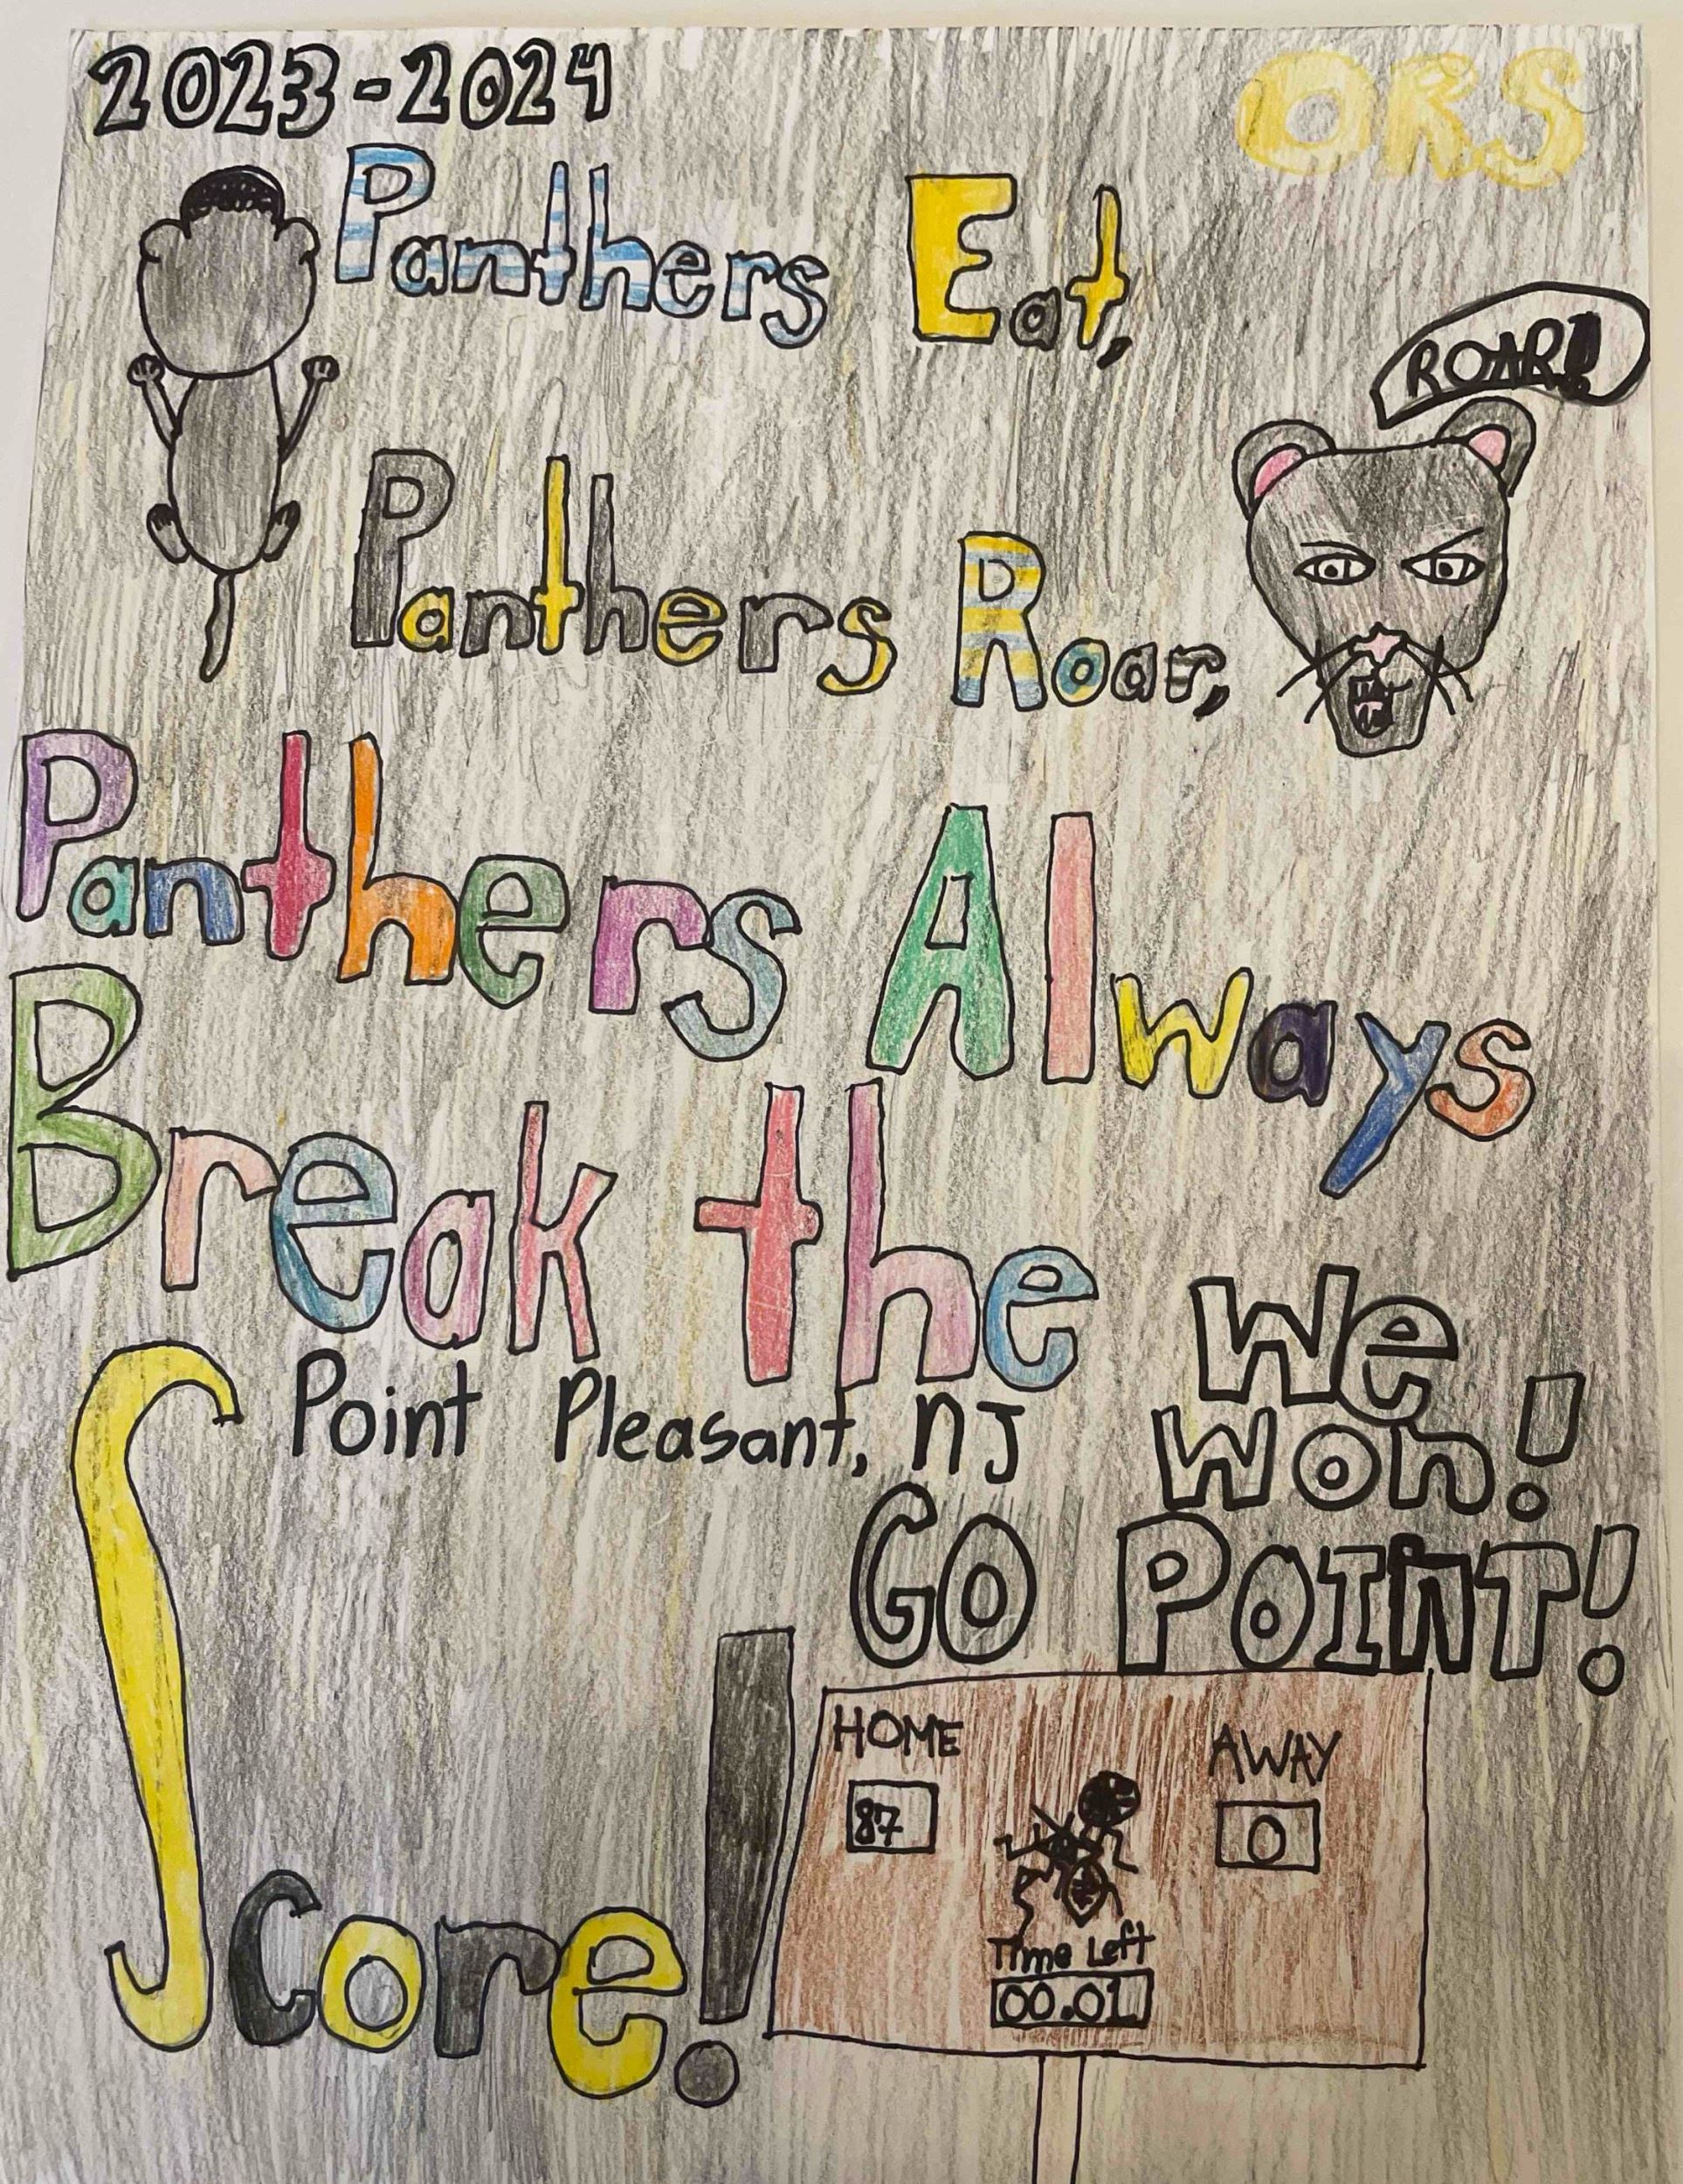 2023-2024
ORS
Panthers Eat,
ROAR!!
Panthers Roar,
Panthers Always
Break the
We
won!
Point Pleasant, NJ
GO POINT!
Score!
HOME
AWAY
87
0
Time Left
00.01